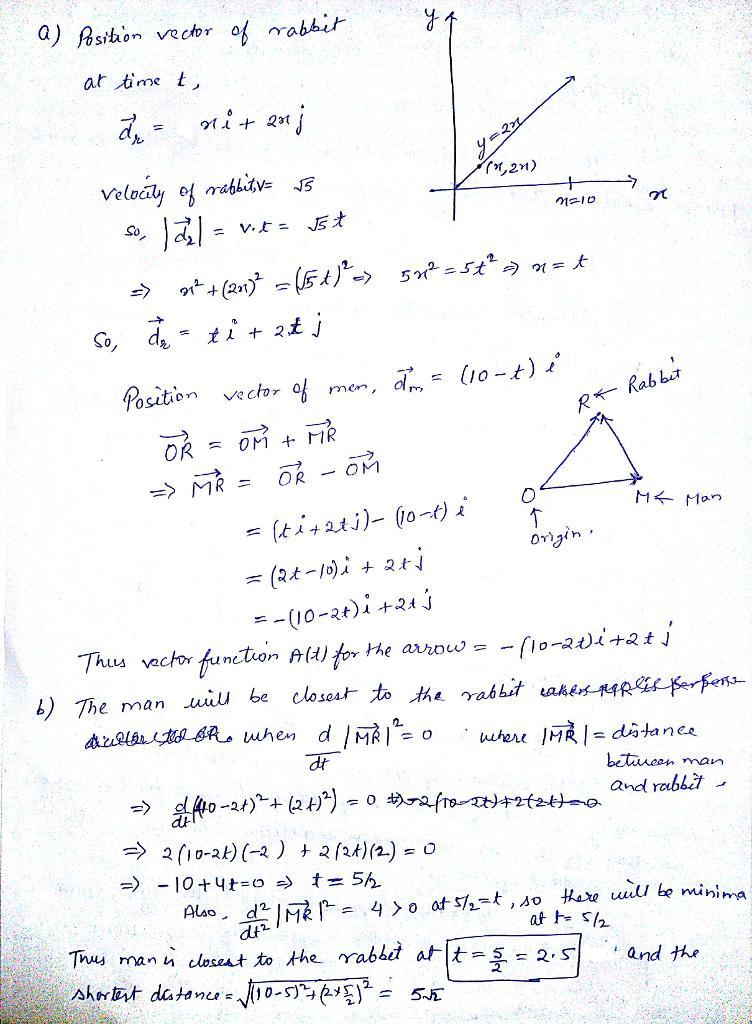 a) Position vector of rabbit
at time t,
d⃗r = x i + 2x j
y
y=2x
(x,2x)
x=10
x
velocity of rabbit, v = √5
so, |d⃗r| = v.t = √5 t
=> x² + (2x)² = (√5 t)² => 5x² = 5t² => x = t
So, d⃗r = t i + 2t j
Position vector of men, d⃗m = (10-t) i
OR⃗ = OM⃗ + MR⃗
=> MR⃗ = OR⃗ - OM⃗
= (t i + 2t j) - (10-t) i
= (2t-10) i + 2t j
= -(10-2t) i + 2t j
R ← Rabbit
O
↑
origin.
M ← Man
Thus vector function A(t) for the arrow = -(10-2t) i + 2t j
b) The man will be closest to the rabbit
when d/dt |MR⃗|² = 0 where |MR⃗| = distance
between man
and rabbit
=> d/dt ((10-2t)² + (2t)²) = 0
=> 2(10-2t)(-2) + 2(2t)(2) = 0
=> -10+4t=0 => t = 5/2
Also, d²/dt² |MR⃗|² = 4 > 0 at 5/2 = t, so there will be minima
at t = 5/2
Thus man is closest to the rabbet at t = 5/2 = 2.5 and the
shortest distance = √((10-5)² + (2×5/2)²) = 5√2